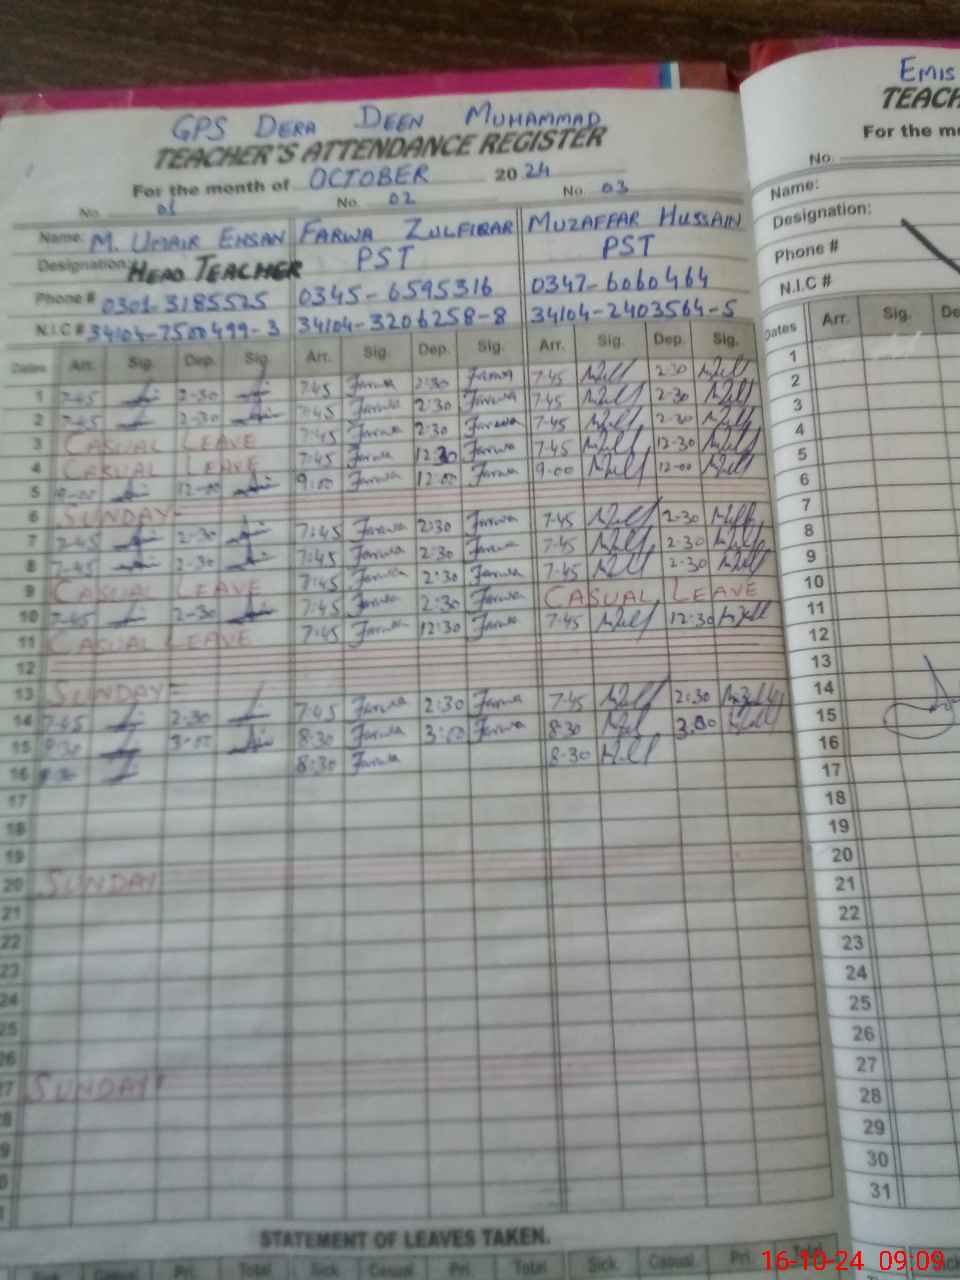 GPS DERA DEEN MUHAMMAD
TEACHER'S ATTENDANCE REGISTER
For the month of OCTOBER 2024
No. 01 No. 02 No. 03
Name: M. UMAIR EHSAN FARWA ZULFIQAR MUZAFFAR HUSSAIN
Designation: HEAD TEACHER PST PST
Phone # 0301-3185525 0345-6595316 0347-6060464
N.I.C # 34104-7500499-3 34104-3206258-8 34104-2403564-5
Dates Arr. Sig. Dep. Sig. Arr. Sig. Dep. Sig. Arr. Sig. Dep. Sig.
1 7-45 2-30 7:45 Farwa 2:30 Farwa 7-45 2-30
2 7-45 2-30 7:45 Farwa 2:30 Farwa 7-45 2-30
3 CASUAL LEAVE 7:45 Farwa 2:30 Farwa 7-45 2-30
4 CASUAL LEAVE 7:45 Farwa 12:30 Farwa 7-45 12-30
5 9-00 12-00 9:00 Farwa 12:00 Farwa 9-00 12-00
6 SUNDAY
7 7-45 2-30 7:45 Farwa 2:30 Farwa 7-45 2-30
8 7-45 2-30 7:45 Farwa 2:30 Farwa 7-45 2-30
9 CASUAL LEAVE 7:45 Farwa 2:30 Farwa 7-45 2-30
10 7-45 2-30 7:45 Farwa 2:30 Farwa CASUAL LEAVE
11 CASUAL LEAVE 7:45 Farwa 12:30 Farwa 7-45 12-30
12
13 SUNDAY
14 7-45 2-30 7:45 Farwa 2:30 Farwa 7-45 2-30
15 8:30 3-00 8:30 Farwa 3:00 Farwa 8:30 3.00
16 8:30 Farwa 8-30
17
18
19
20 SUNDAY
21
22
23
24
25
26
27 SUNDAY
28
STATEMENT OF LEAVES TAKEN.
Sick Casual Pri. Total Sick Casual Pri. Total Sick Casual Pri. Total
EMIS
TEACH
For the m
No.
Name:
Designation:
Phone #
N.I.C #
Dates Arr. Sig. De
1
2
3
4
5
6
7
8
9
10
11
12
13
14
15
16
17
18
19
20
21
22
23
24
25
26
27
28
29
30
31
16-10-24 09:09